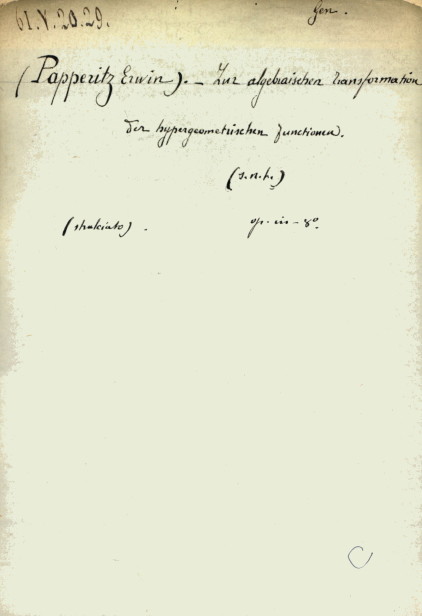 61.V.20.29.
Gen.
(Papperitz Erwin). – Zur algebraischen transformation
der hypergeometrischen functionen.
(s.n.t.)
(stralciato). op. in – 8º.
C